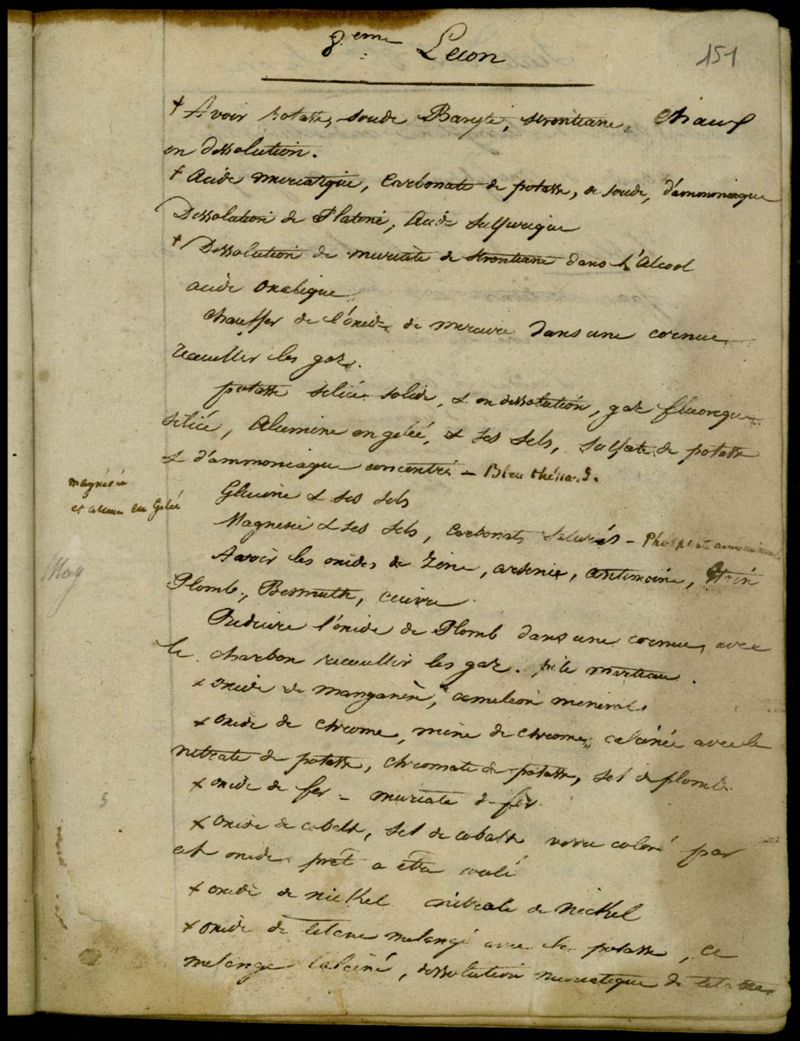 8.eme Lecon
151
+ Avoir potasse, soude Baryte, strontiane, chaux
en dissolution.
+ Acide muriatique, Carbonate de potasse, de soude, d'ammoniaque
Dissolution de Platine, Acide Sulfurique
+ Dissolution de muriate de strontiane dans l'Alcool
acide oxalique
chauffer de l'oxide de mercure dans une cornue
recueillir les gaz.
potasse silicée solide, & en dissolution, gaz fluorique
silicé, Alumine en gelée, & ses sels, sulfate de potasse
& d'ammoniaque concentrés - Bleu thénard.
magnésie
et alum en Gelée
Glucine & ses sels
Magnesie & ses sels, Carbonate saturés - Phosphate
May
Avoir les oxides de Zinc, arsenic, antimoine, étain
Plomb, Bismuth, cuivre
Reduire l'oxide de Plomb dans une cornue, avec
le charbon recueillir les gaz.
+ oxide de manganèse, cameleon mineral
+ oxide de chrome, mine de chrome, calcinée avec le
nitrate de potasse, chromate de potasse, sel de plomb
+ oxide de fer - muriate de fer
+ oxide de cobalt, sel de cobalt verre coloré par
cet oxide prêt a être coulé
+ oxide de nickel nitrate de nickel
+ oxide de titane melangé avec la potasse, ce
melange calciné, dissolution muriatique de titane